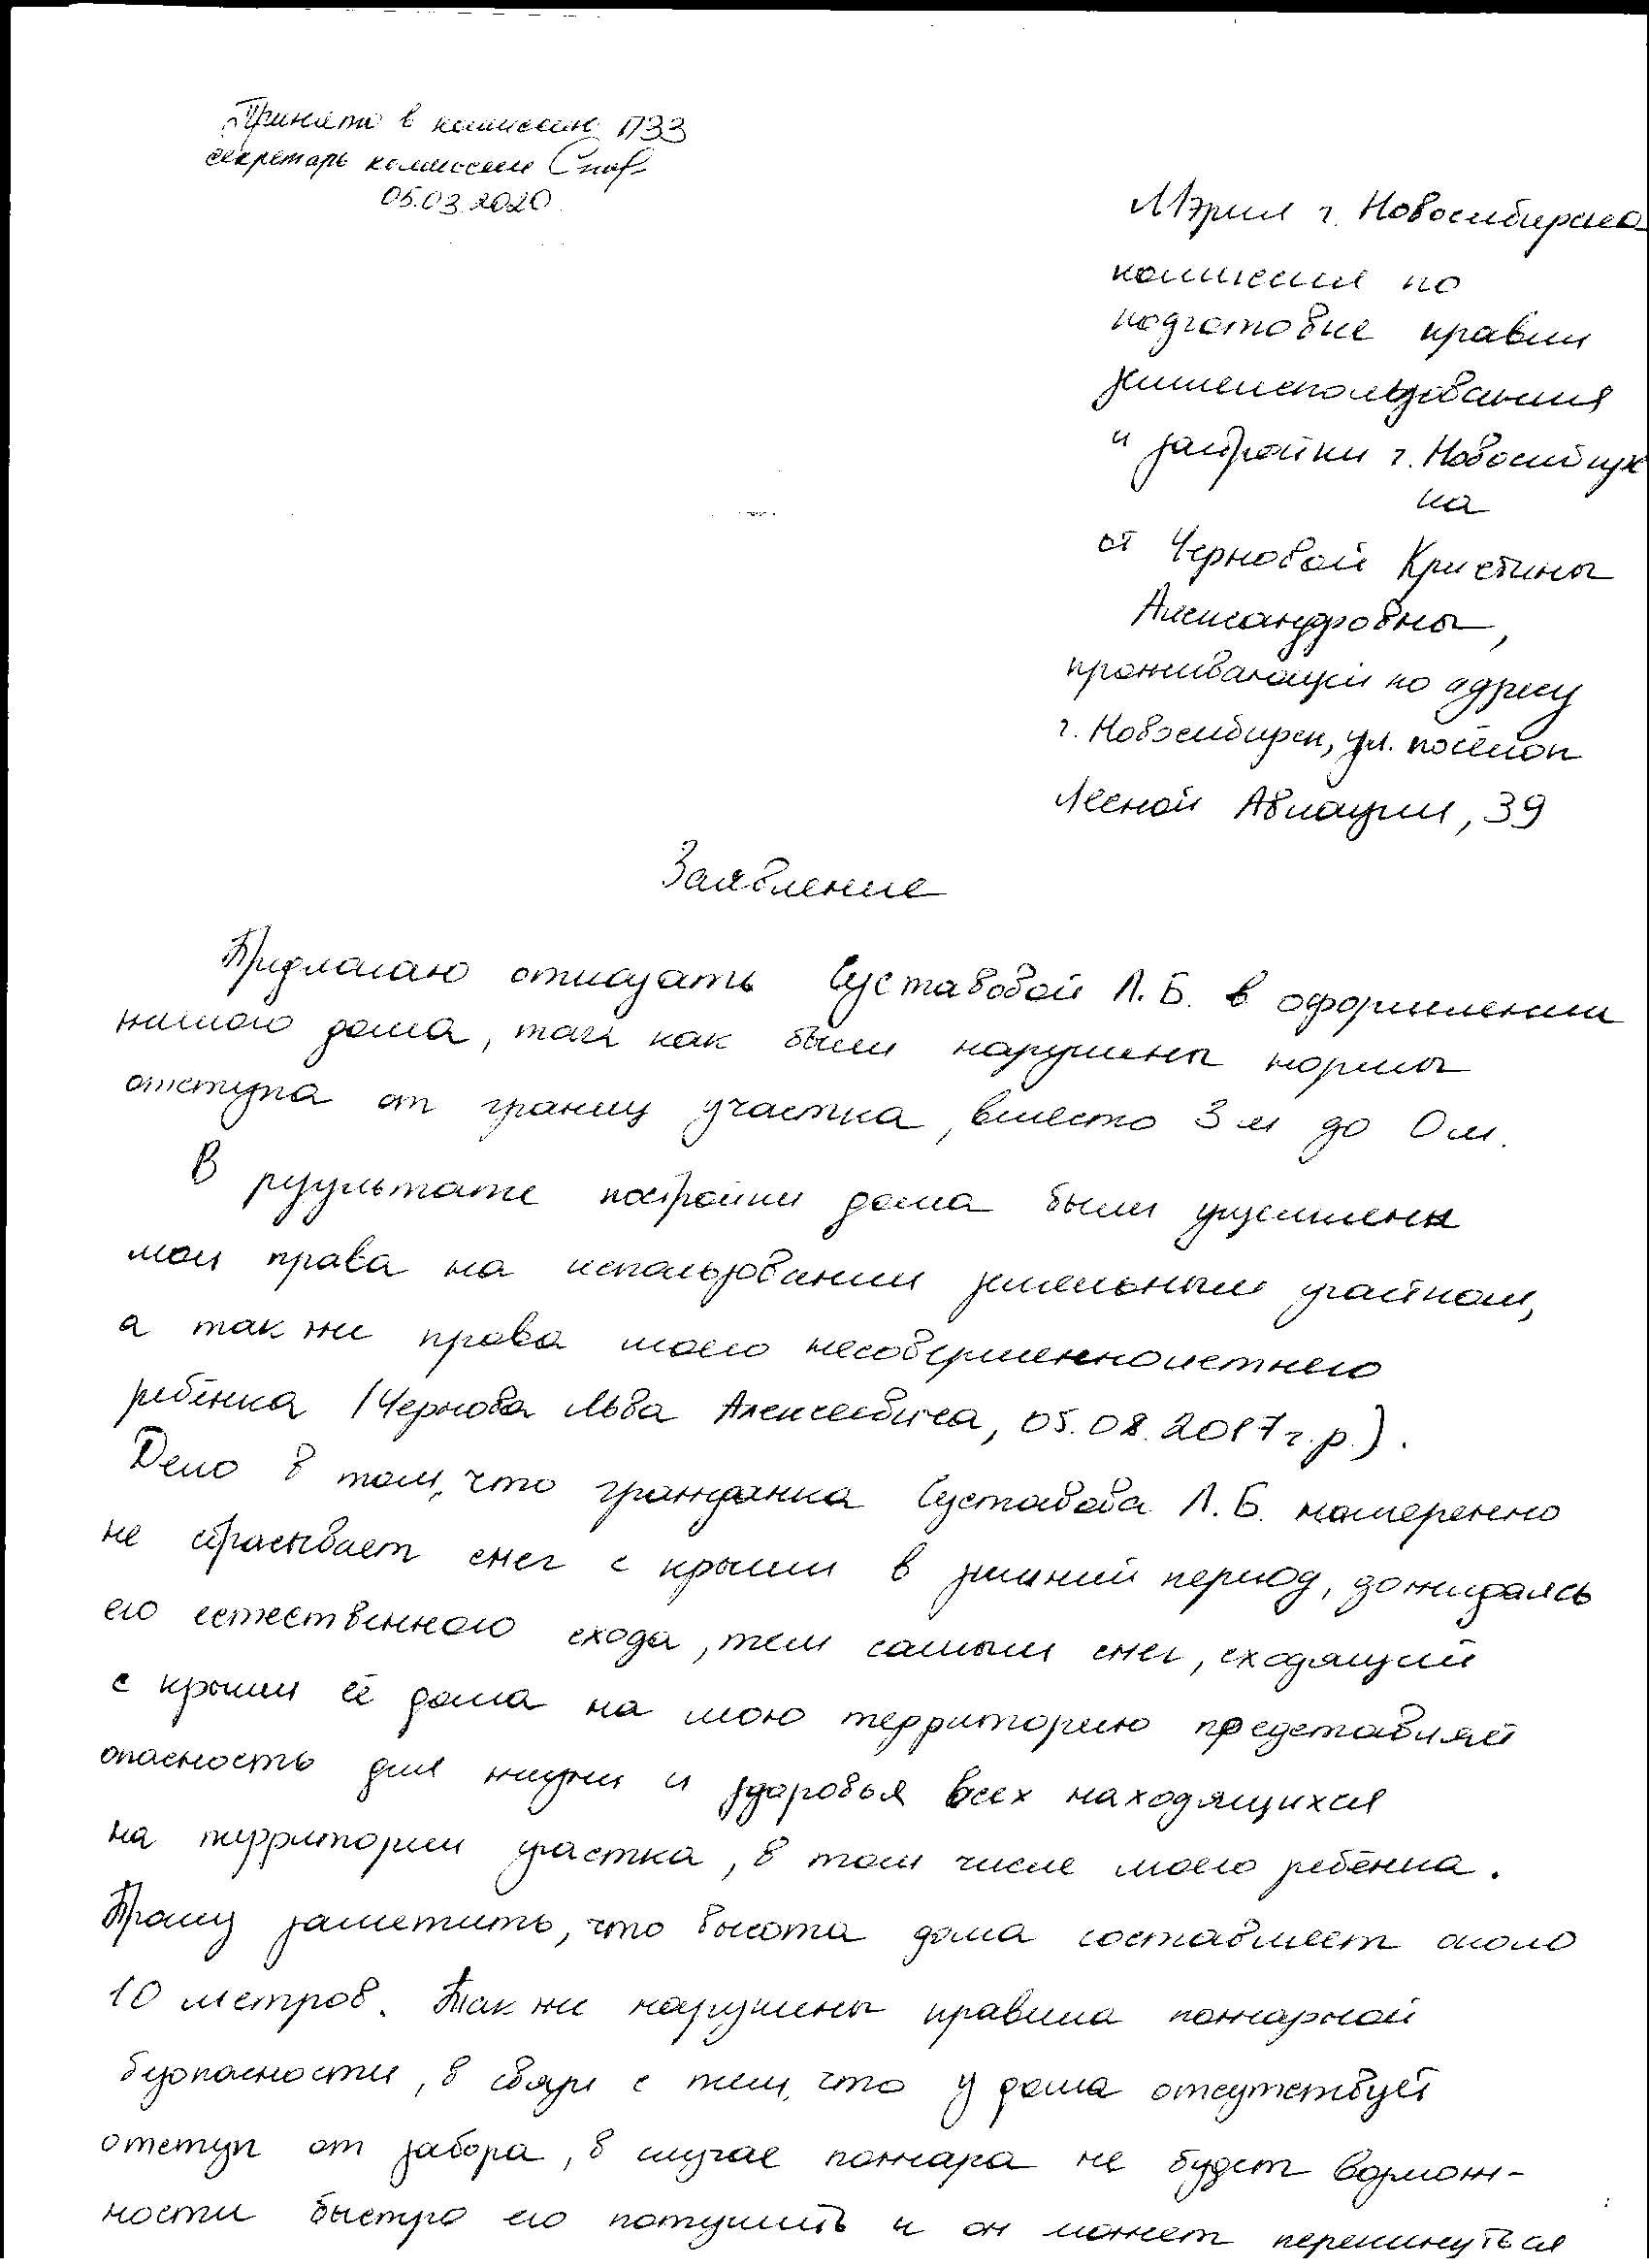 Принято в комиссии ПЗЗ
секретарь комиссии
05.03.2020
Мэрия г. Новосибирска
комиссия по
подготовке правил
землепользования
и застройки г. Новосибирс
ка
от Черновой Кристины
Александровны,
проживающей по адресу
г. Новосибирск, ул. посёлок
Лесной Авиации, 39
Заявление
Предлагаю отказать Суставовой Л.Б. в оформлении
жилого дома, так как были нарушены нормы
отступа от границ участка, вместо 3 м до 0 м.
В результате постройки дома были ущемлены
мои права на использовании земельным участком,
а так же права моего несовершеннолетнего
ребёнка (Чернова Льва Алексеевича, 05.08.2017 г.р.).
Дело в том, что гражданка Суставова Л.Б. намеренно
не сбрасывает снег с крыши в зимний период, дожидаясь
его естественного схода, тем самым снег, сходящий
с крыши её дома на мою территорию представляет
опасность для жизни и здоровья всех находящихся
на территории участка, в том числе моего ребёнка.
Прошу заметить, что высота дома составляет около
10 метров. Так же нарушены правила пожарной
безопасности, в связи с тем, что у дома отсутствует
отступ от забора, в случае пожара не будет возмож-
ности быстро его потушить и он может перекинуться